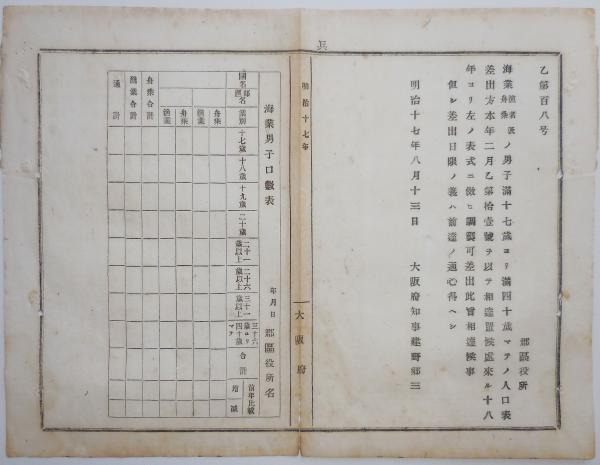 兵
乙第百八号
郡區役所
海業漁者及舟乗ノ男子滿十七歳ヨリ滿四十歳マテノ人口表
差出方本年二月乙第拾壹號ヲ以テ相達置候處來ル十八
年ヨリ左ノ表式ニ倣ヒ調製可差出此旨相達候事
但シ差出日限ノ義ハ前達ノ通心得ヘシ
明治十七年八月十三日
大阪府知事建野郷三
明治十七年
大阪府
海業男子口數表
年月日
郡區役所名
國名
郡區名
業別
十七歳
十八歳
十九歳
二十歳
二十一歳以上
二十六歳以上
三十一歳以上
三十六歳ヨリ四十歳マテ
合計
前年比較
増
減
舟乗
漁業
舟乗
漁業
舟乗合計
漁業合計
通計